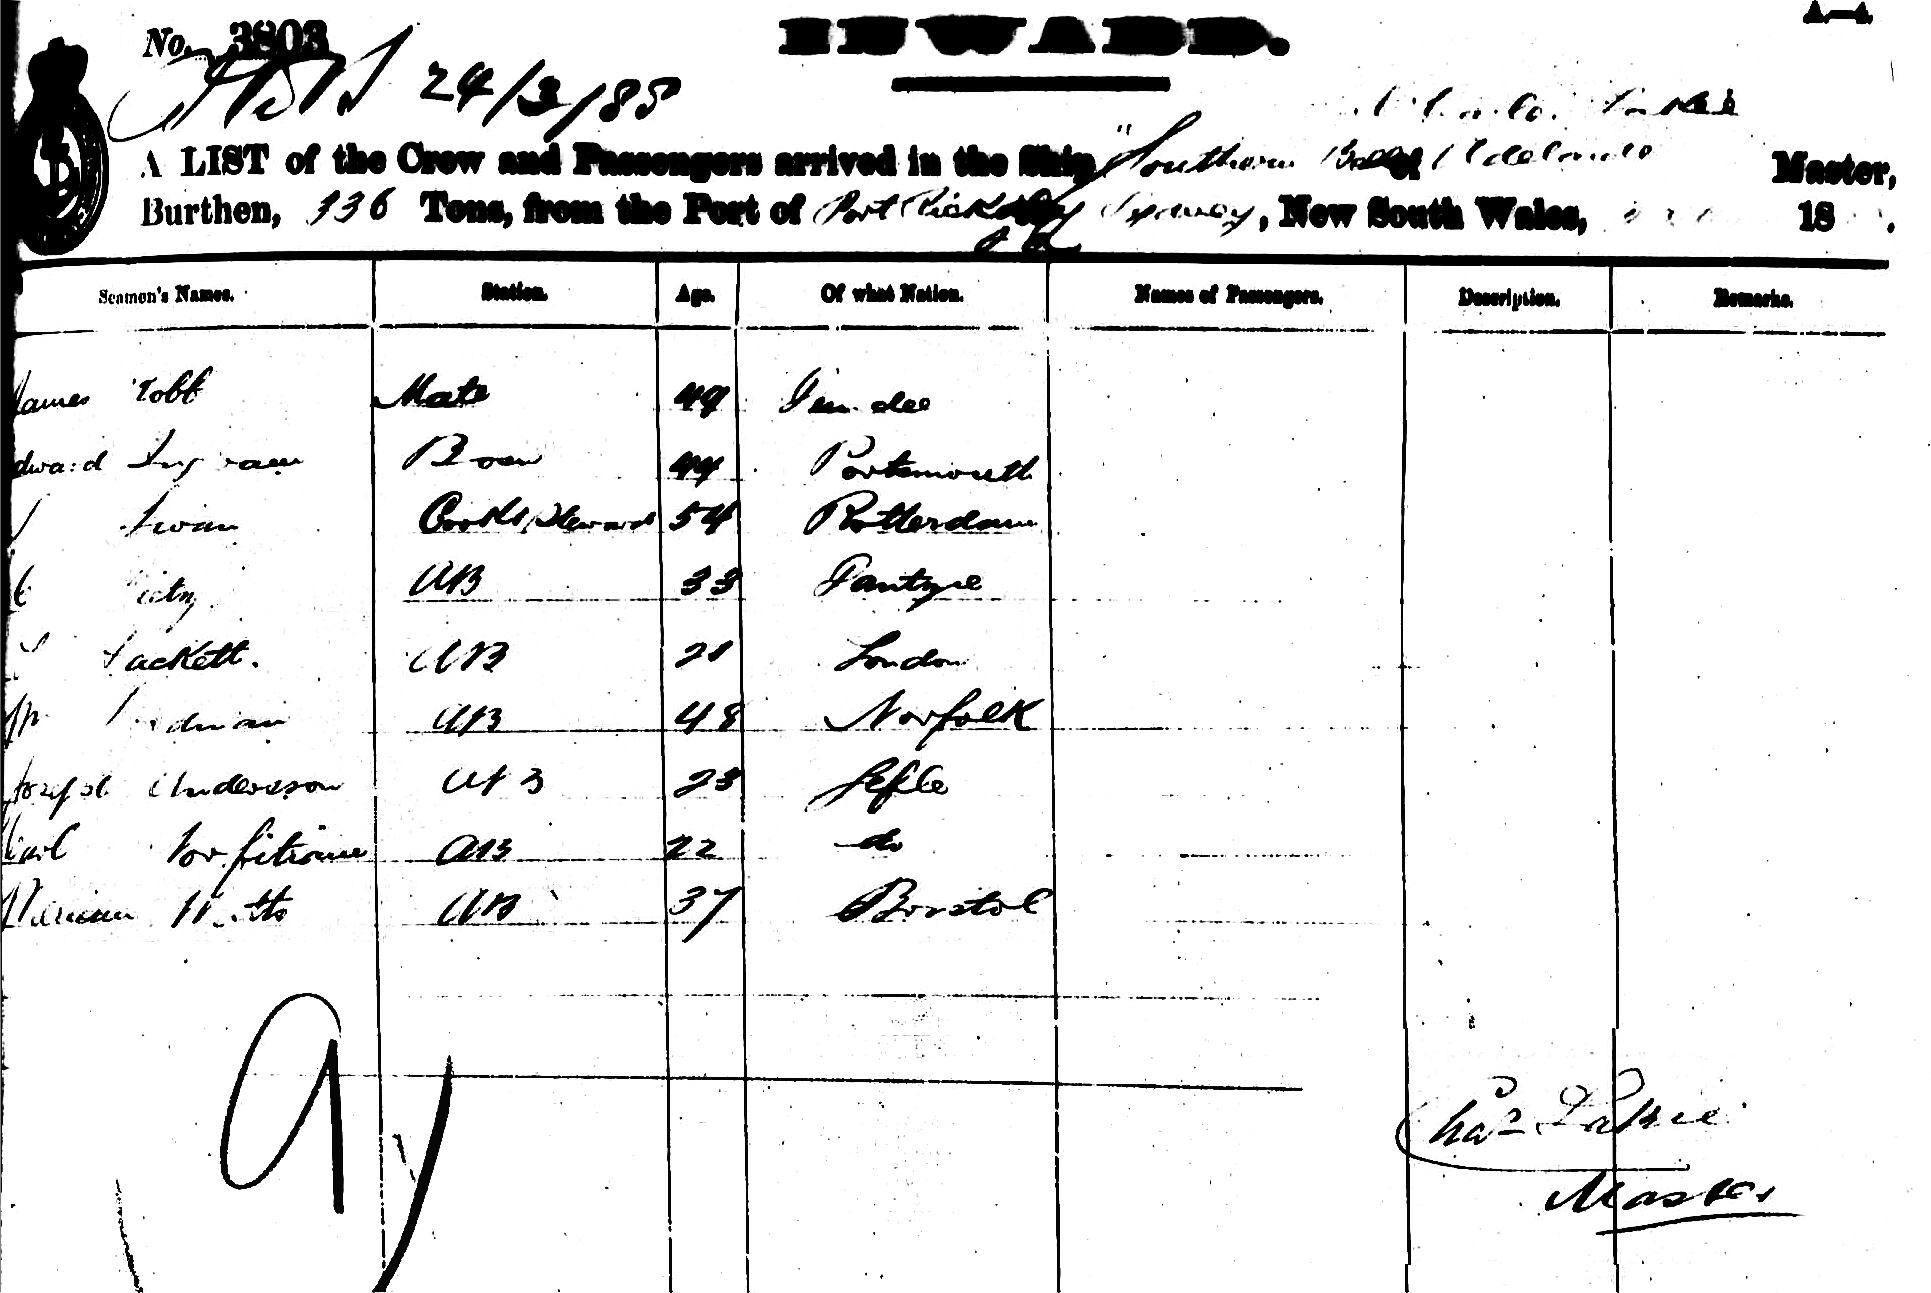 No. 3803
INWARD.
24/3/88
A LIST of the Crew and Passengers arrived in the Ship "Southern Belle of Adelaide Master,
Burthen, 336 Tons, from the Port of Port Sydney, New South Wales, 18 .
Seamen's Names. Station. Age. Of what Nation. Names of Passengers. Description. Remarks.
James Mate 49 Dundee
Edward Ingram Bosn 44 Portsmouth
Swan Cook & Steward 54 Rotterdam
AB 33
Sackett. AB 21 London
Wm AB 48 Norfolk
Joseph Andersson AB 23 Gefle
Carl AB 22 do
William Watts AB 37 Bristol
9
Chas
Master